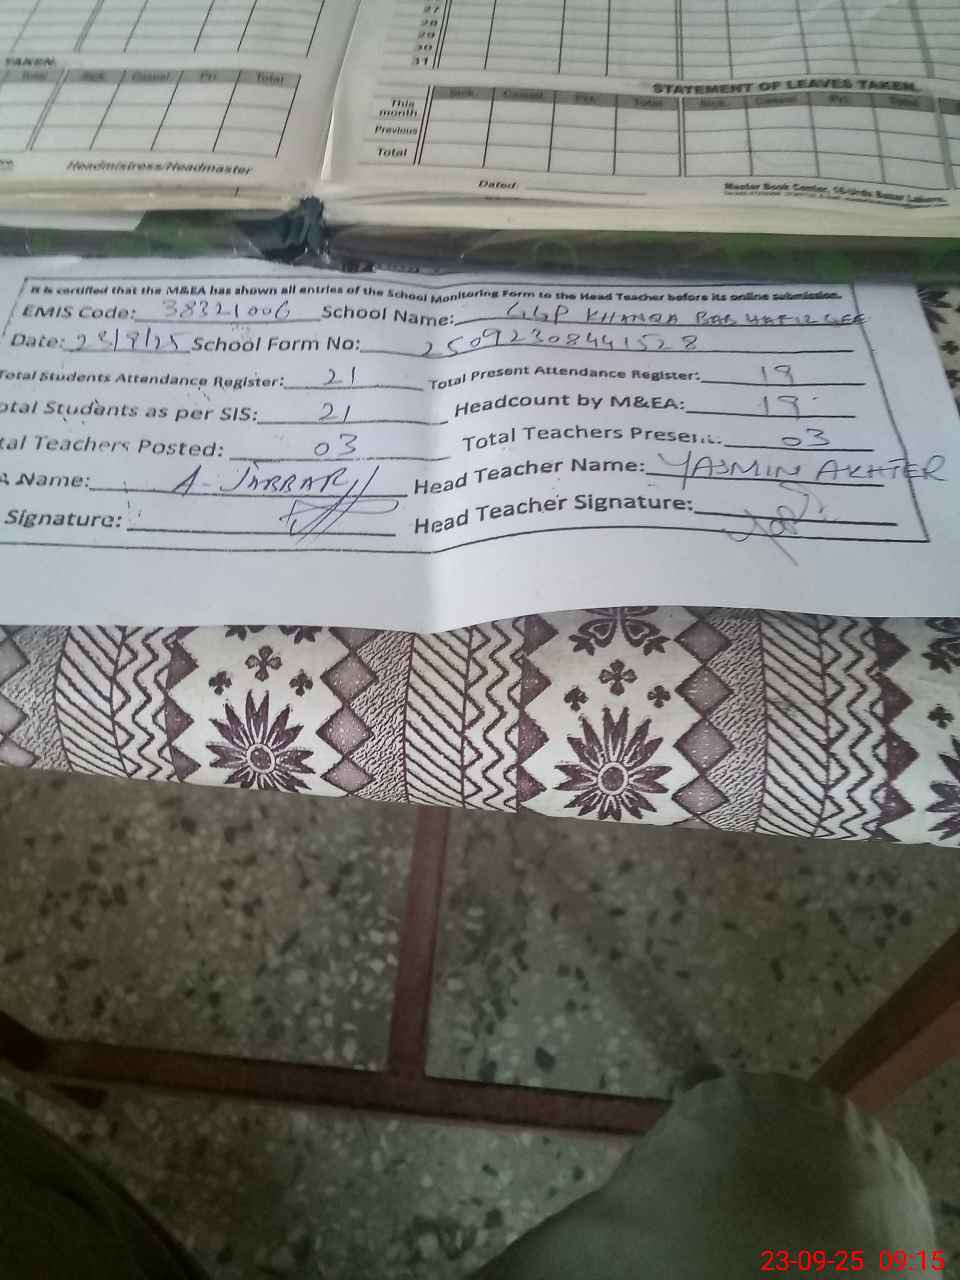 27
28
29
30
31
TAKEN.
Total Sick. Casual Pri. Total
Headmistress/Headmaster
STATEMENT OF LEAVES TAKEN.
Sick. Casual Pri. Total Sick. Casual Pri. Total
This month
Previous
Total
Dated:
Master Book Center, 16-Urdu Bazar Lahore.
It is certified that the M&EA has shown all entries of the School Monitoring Form to the Head Teacher before its online submission.
EMIS Code: 38321006 School Name: GGP KHANQA
Date: 23/9/25 School Form No: 25092308441528
Total Students Attendance Register: 21 Total Present Attendance Register: 19
otal Students as per SIS: 21 Headcount by M&EA: 19
tal Teachers Posted: 03 Total Teachers Present: 03
A Name: A. JABBAR Head Teacher Name: YASMIN AKHTER
Signature: Head Teacher Signature:
23-09-25 09:15